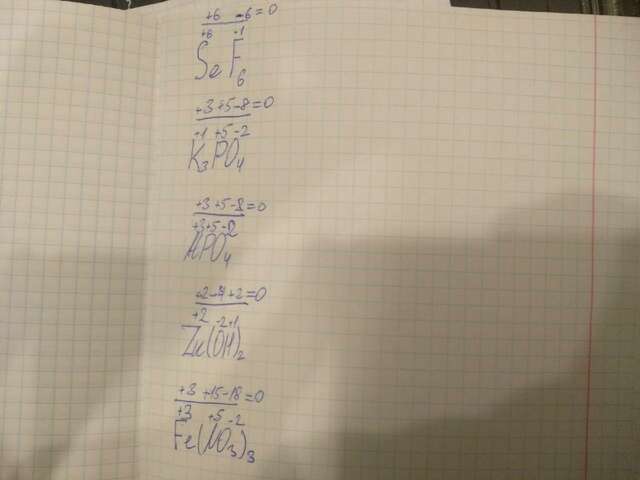 +6 -6=0
+6 -1
SeF6
+3+5-8=0
+1 +5-2
K3PO4
+3+5-8=0
+3+5-2
AlPO4
+2-4+2=0
+2 -2+1
Zn(OH)2
+3 +15-18=0
+3 +5-2
Fe(NO3)3